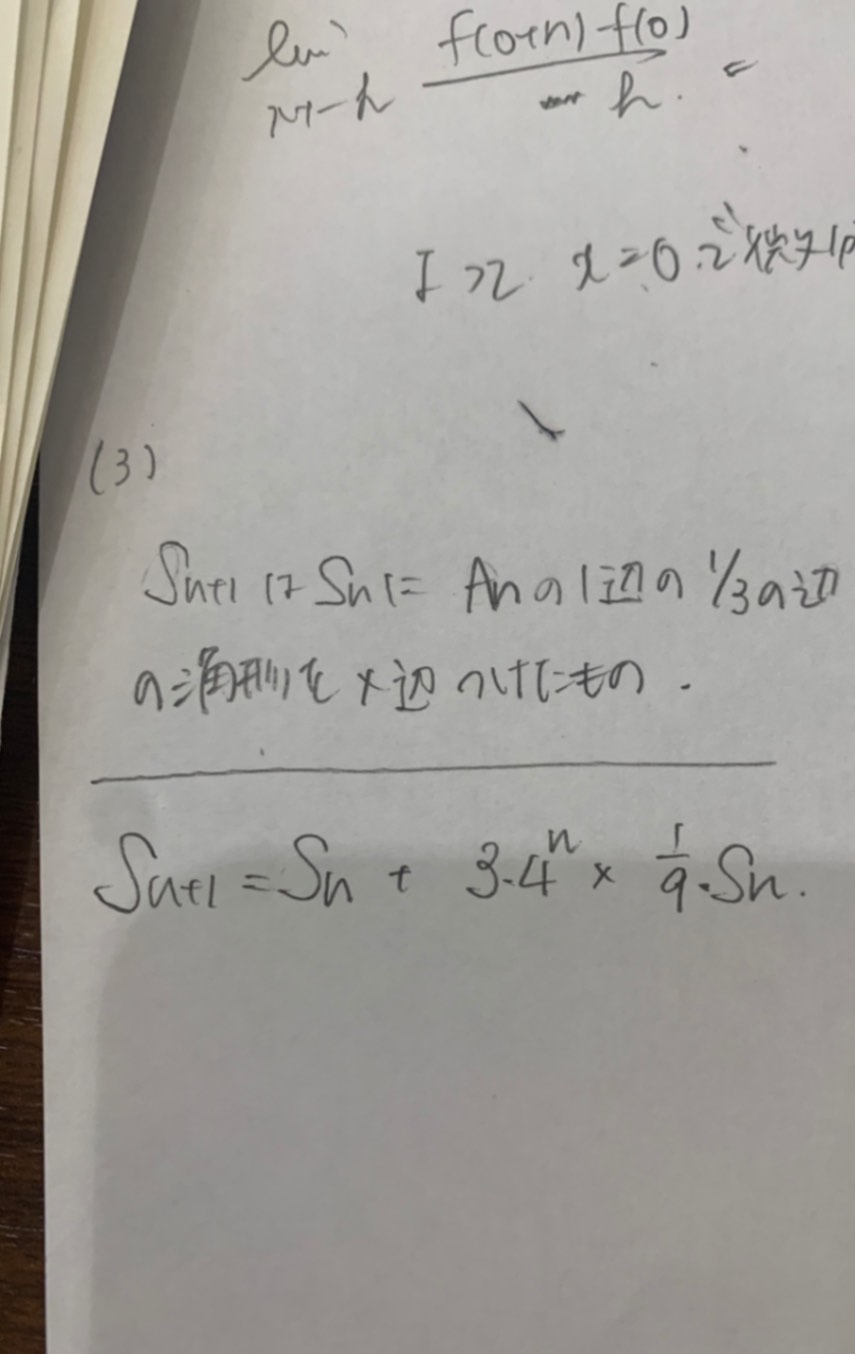 lim f(0+h)-f(0) / h =
x=0で微分
(3)
Sn+1は Snに Anの1辺の 1/3の辺
の三角形を 各辺 つけたもの.
Sn+1 = Sn + 3・4^n × 1/9・Sn.